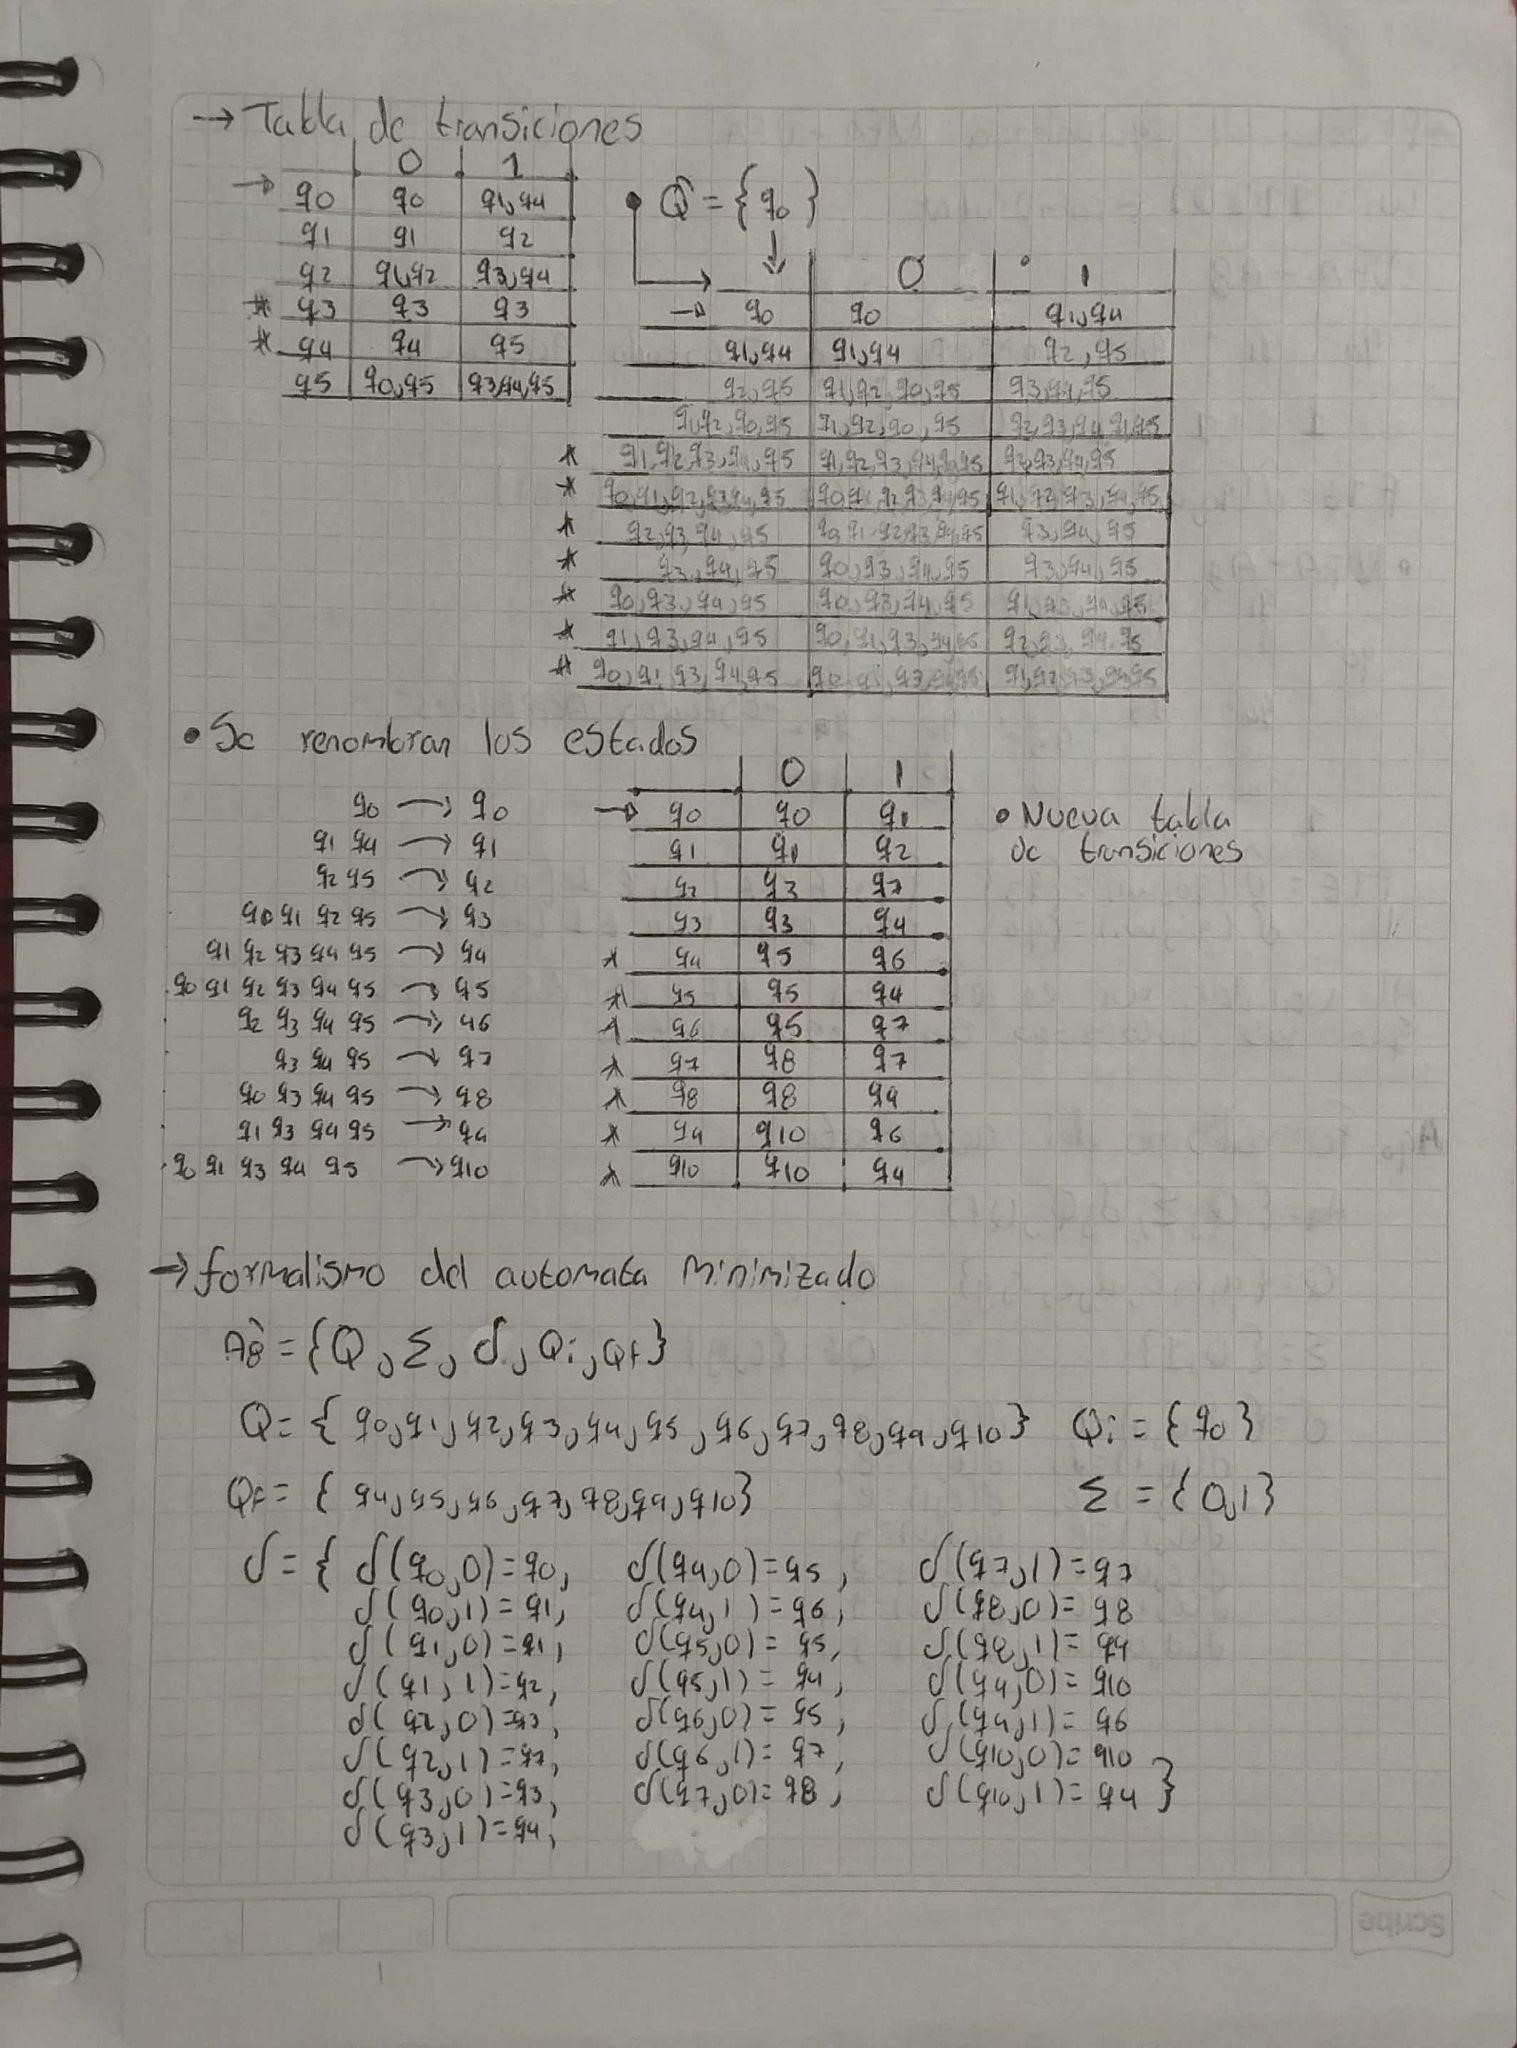 → Tabla de transiciones
0 1
→ q0 q0 q1,q4
q1 q1 q2
q2 q1,q2 q3,q4
* q3 q3 q3
* q4 q4 q5
q5 q0,q5 q3,q4,q5
• Q̂ = {q0}
0 1
→ q0 q0 q1,q4
q1,q4 q1,q4 q2,q5
q2,q5 q1,q2,q0,q5 q3,q4,q5
q1,q2,q0,q5 q1,q2,q0,q5 q2,q3,q4,q1,q5
* q1,q2,q3,q4,q5 q1,q2,q3,q4,q0,q5 q2,q3,q4,q5
* q0,q1,q2,q3,q4,q5 q0,q1,q2,q3,q4,q5 q1,q2,q3,q4,q5
* q2,q3,q4,q5 q0,q1,q2,q3,q4,q5 q3,q4,q5
* q3,q4,q5 q0,q3,q4,q5 q3,q4,q5
* q0,q3,q4,q5 q0,q3,q4,q5 q1,q3,q4,q5
* q1,q3,q4,q5 q0,q1,q3,q4,q5 q2,q3,q4,q5
* q0,q1,q3,q4,q5 q0,q1,q3,q4,q5 q1,q2,q3,q4,q5
• Se renombran los estados
q0 → q0
q1 q4 → q1
q2 q5 → q2
q0 q1 q2 q5 → q3
q1 q2 q3 q4 q5 → q4
q0 q1 q2 q3 q4 q5 → q5
q2 q3 q4 q5 → q6
q3 q4 q5 → q7
q0 q3 q4 q5 → q8
q1 q3 q4 q5 → q9
q0 q1 q3 q4 q5 → q10
0 1
→ q0 q0 q1
q1 q1 q2
q2 q3 q7
q3 q3 q4
* q4 q5 q6
* q5 q5 q4
* q6 q5 q7
* q7 q8 q7
* q8 q8 q9
* q9 q10 q6
* q10 q10 q4
• Nueva tabla
de transiciones
→ formalismo del automata Minimizado
A8̂ = {Q, Σ, δ, Qi, Qf}
Q = { q0, q1, q2, q3, q4, q5, q6, q7, q8, q9, q10} Qi = {q0}
Qf = { q4, q5, q6, q7, q8, q9, q10} Σ = {0,1}
δ = { δ(q0,0)=q0, δ(q4,0)=q5, δ(q7,1)=q7
δ(q0,1)=q1, δ(q4,1)=q6, δ(q8,0)=q8
δ(q1,0)=q1, δ(q5,0)=q5, δ(q8,1)=q9
δ(q1,1)=q2, δ(q5,1)=q4, δ(q9,0)=q10
δ(q2,0)=q3, δ(q6,0)=q5, δ(q9,1)=q6
δ(q2,1)=q7, δ(q6,1)=q7, δ(q10,0)=q10
δ(q3,0)=q3, δ(q7,0)=q8, δ(q10,1)=q4 }
δ(q3,1)=q4,
Scribe